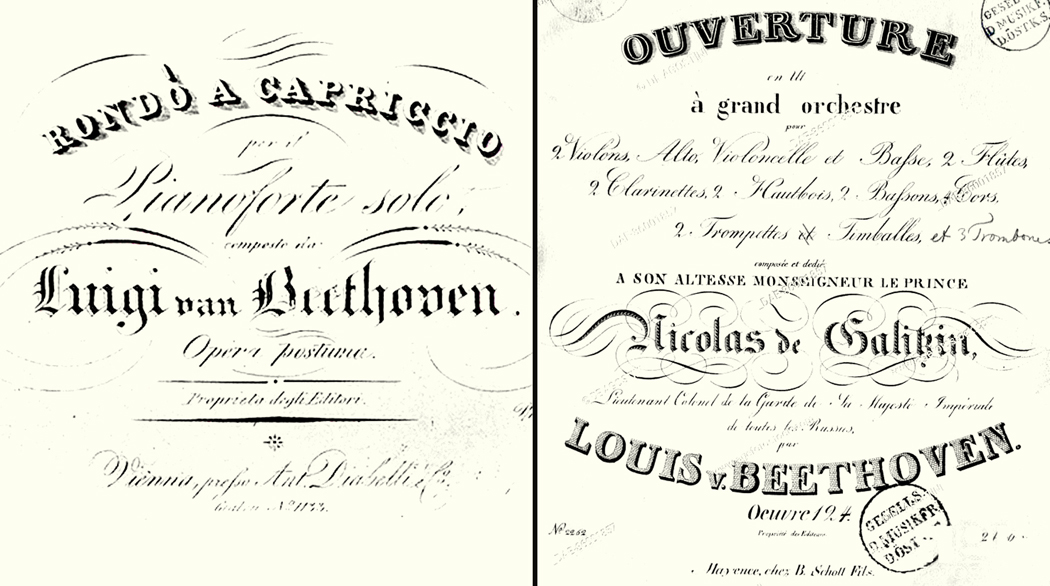 RONDÒ A CAPRICCIO
per il
Pianoforte solo,
composto da
Luigi van Beethoven.
Opera postuma.
Proprietà degli Editori.
Vienna, presso Ant. Diabelli e Co.
OUVERTURE
en Ut
à grand orchestre
pour
2 Violons, Alto, Violoncelle et Basse, 2 Flûtes,
2 Clarinettes, 2 Hautbois, 2 Bassons, 4 Cors.
2 Trompettes et Timballes, et 3 Trombones
composée et dediée
A SON ALTESSE MONSEIGNEUR LE PRINCE
Nicolas de Galitzin,
Lieutenant Colonel de la Garde de Sa Majesté Impériale
de toutes les Russies,
par
LOUIS v. BEETHOVEN.
Oeuvre 124.
Nº 2262
Propriété des Editeurs
Mayence, chez B. Schott Fils.
GESELLS.
D. MUSIKFR.
D. ÖST.
GESELL
D. MUSIKF.
D. ÖST. K. S.